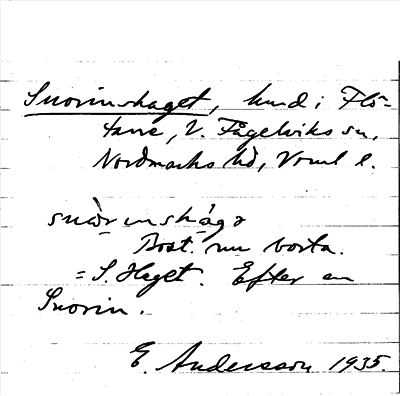 Snorinshaget, hmd i Flö-
tane, V. Fågelviks sn,
Nordmarks hd, Vrml l.
snωrinshágə
Bost. nu borta.
= S. Haget. Efter en
Snorin.
E. Andersson 1935.